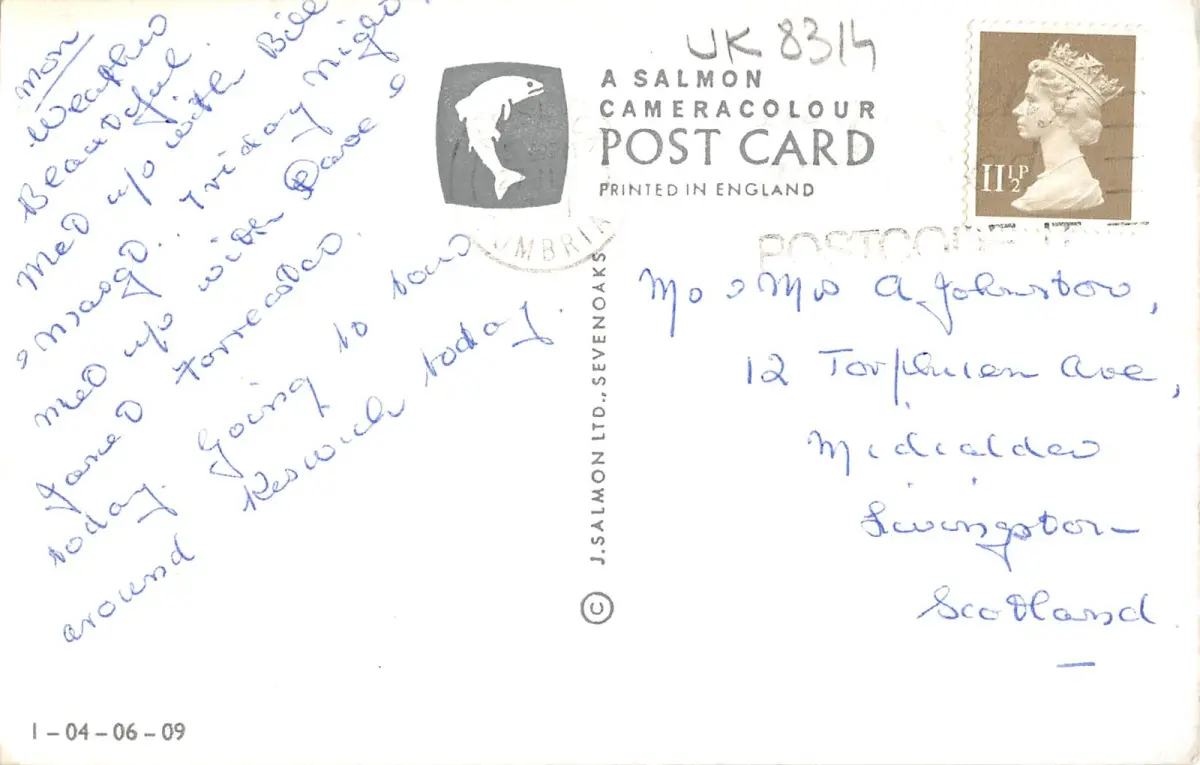 mon
Weather
Beautiful.
Met up with Bill
& marge. Friday night
met up with Dave &
Janet Forrester
today. Going to tour
around Keswick today.
UK 8314
A SALMON
CAMERACOLOUR
POST CARD
PRINTED IN ENGLAND
11½P
CUMBRIA
POSTCODE
© J.SALMON LTD., SEVENOAKS
Mr & Mrs A Johnston,
12 Torphicen Ave,
Midcalder
Livingston
Scotland
1-04-06-09